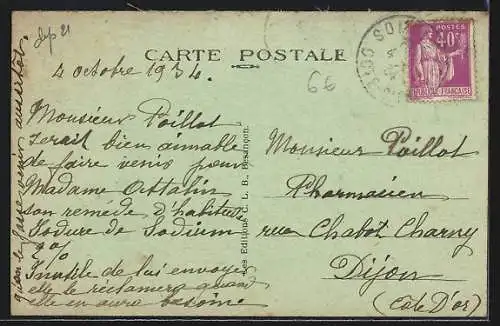 dep 21
CARTE POSTALE
4 octobre 1934.
6€
40c
POSTES
Monsieur Poillot
serait bien aimable
de faire venir pour
Madame
son remède d'habitude
Iodure de Sodium
Inutile de lui envoyer
elle le réclamera quand
elle en aura besoin
Les Editions C. L. B., Besançon
Monsieur Poillot
Pharmacien
rue Chabot Charny
Dijon
(Côte D'or)